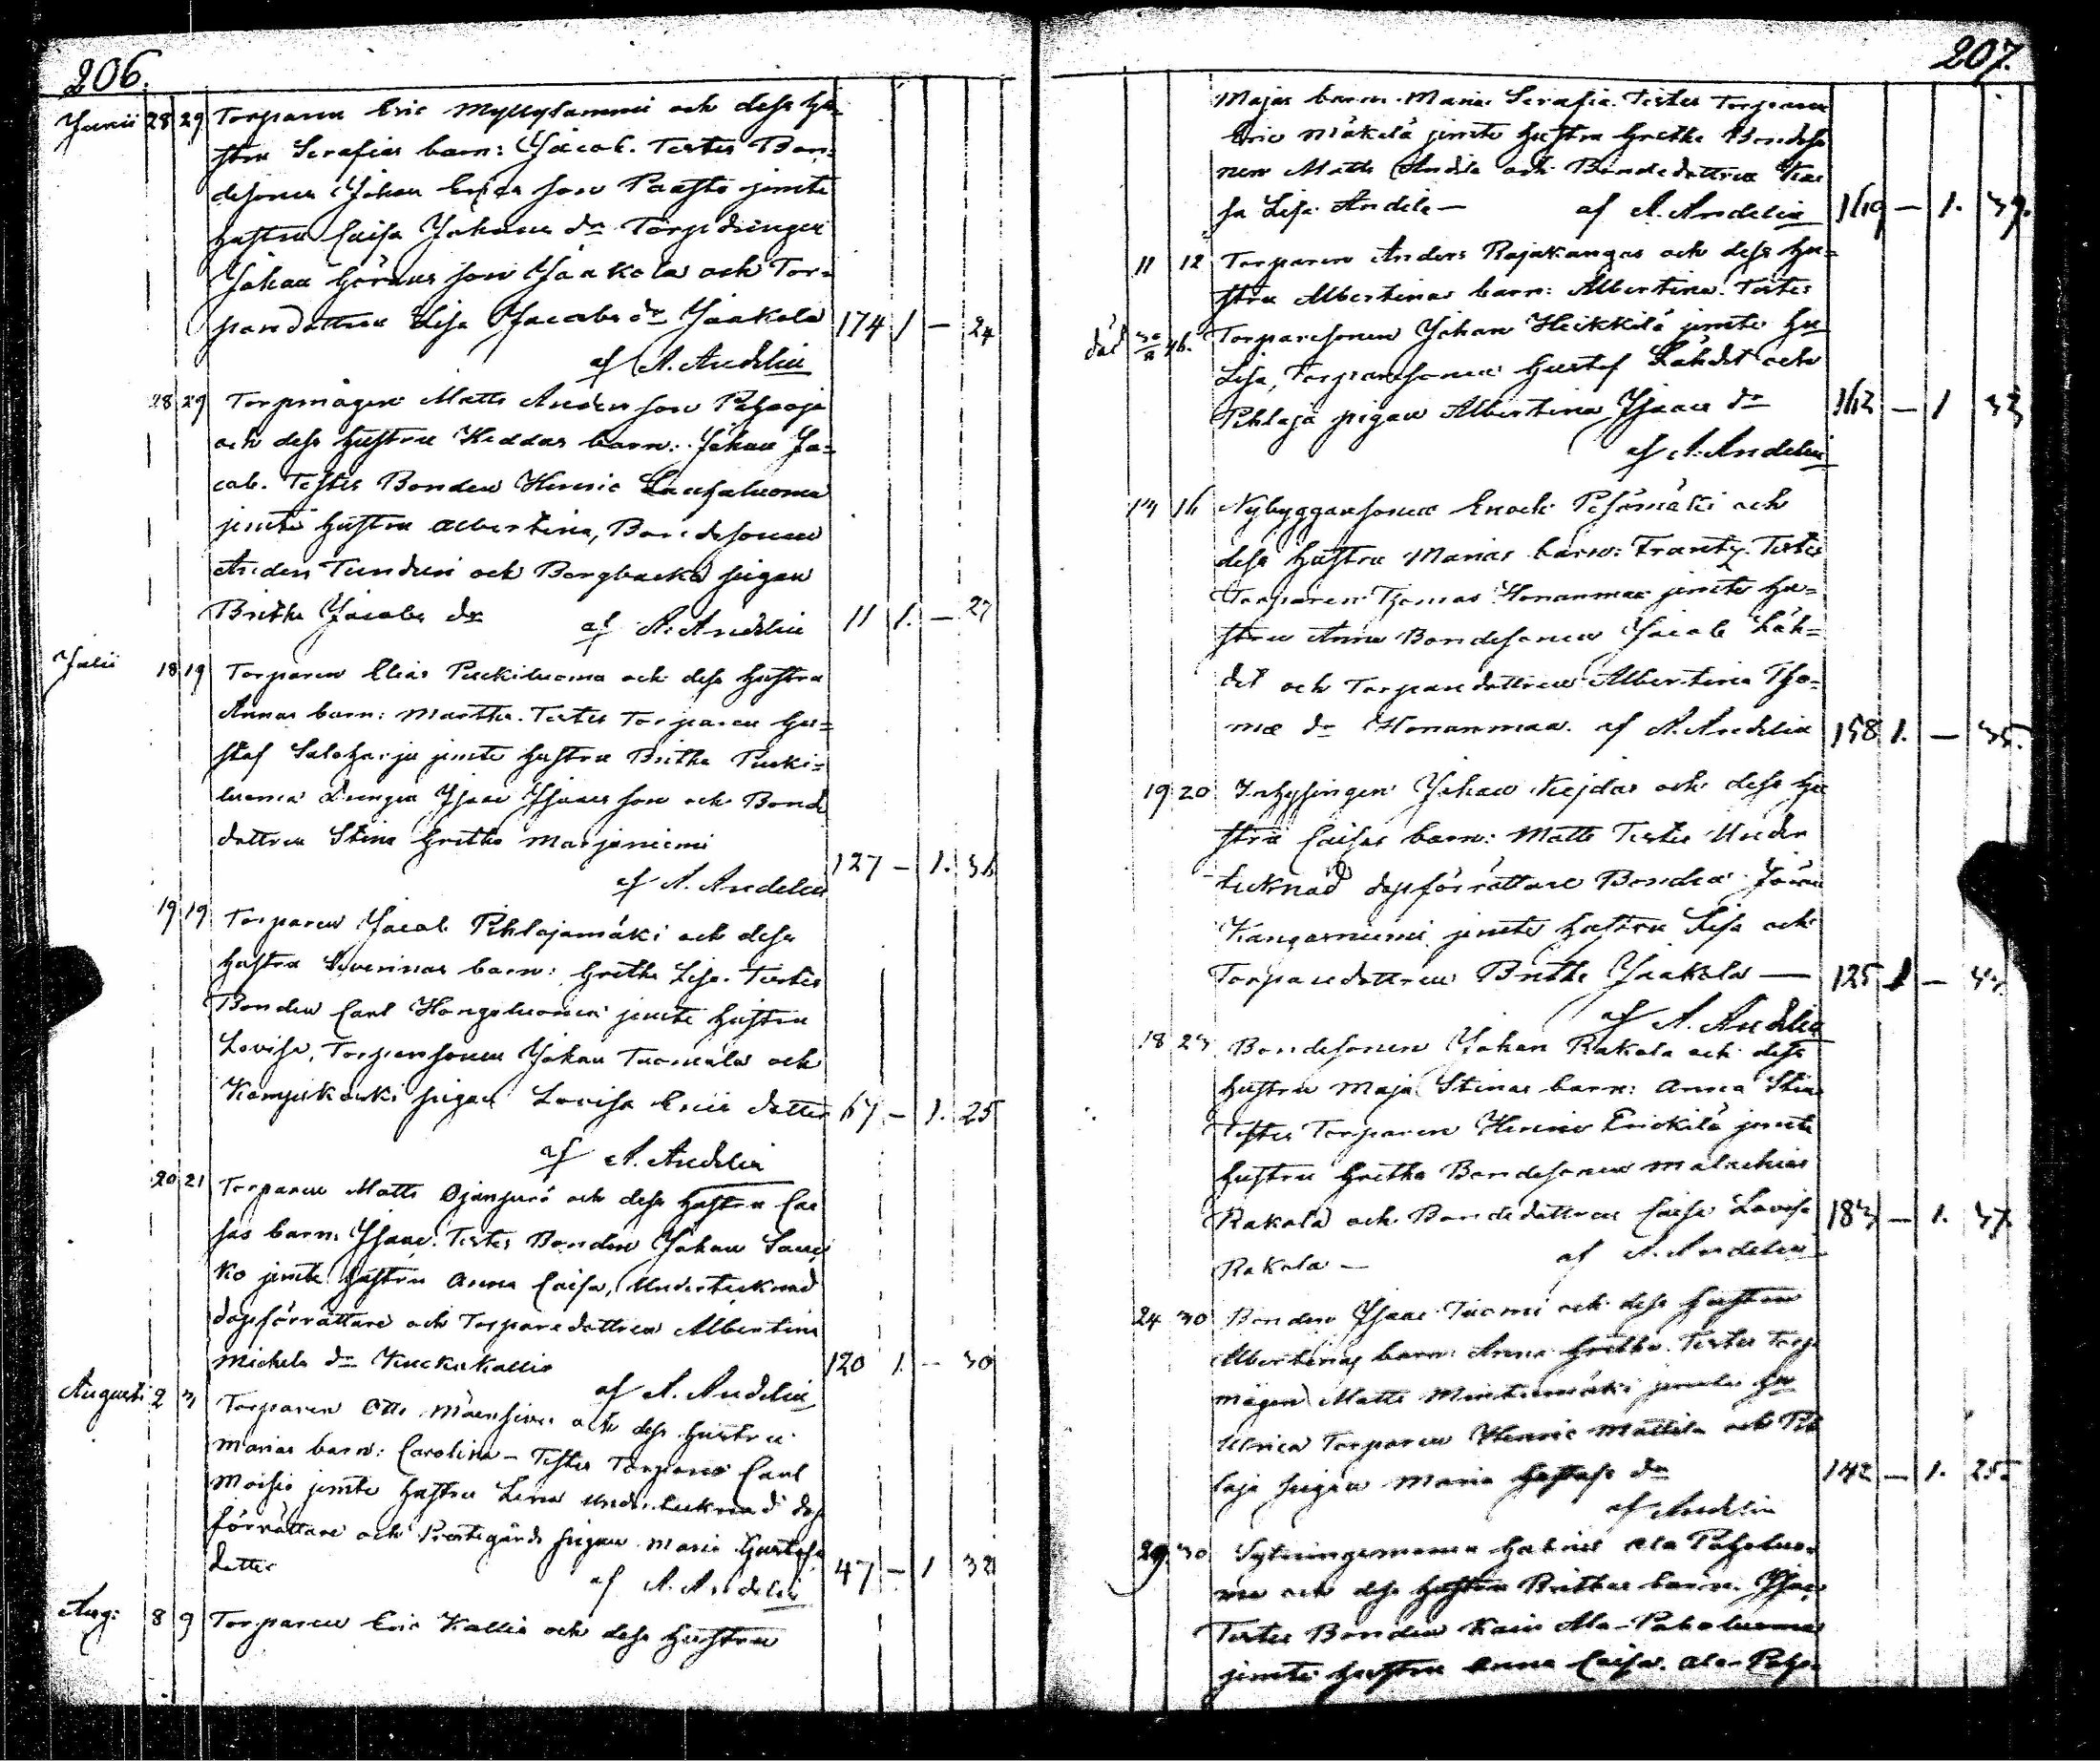 206.
Junii 28 29 Torparen Eric Myllylammi och dess hu-
stru Serafias barn: Jacob. Testes Bon-
desonen Johan Ersson Paasto jemte
hustru Caisa Johans dr Torpdrängen
Johan Görans son Jaakola och Tor-
pardottren Lisa Jacobs dr Jaakola 174 1 — 24
af A. Andelin
28 29 Torpmågen Matts Anders son Pahaoja
och dess hustru Heddas barn: Johan Ja-
cob. Testes Bonden Henric
jemte hustru Albertina, Bondesonen
Anders Tunduri och Bergbacka pigan
Britha Jacobs dr af A. Andelin 11 1. — 27
Julii 18 19 Torparen Elias Puskiluoma och dess hustru
Annas barn: Martha. Testes Torparen Gu-
staf Saloharju jemte hustru Britha Puski-
luoma Drängen Isaac Isaacs son och Bond
dottren Stina Gretha Marjaniemi
127 — 1. 36
af A. Andelin
19 19 Torparen Jacob Pihlajamäki och dess
hustru Severinas barn: Gretha Lisa. Testes
Bonden Carl Hongoluoma jemte hustru
Lovisa, Torparsonen Johan Tuomela och
pigan Lovisa Erics dotter 67 — 1. 25
af A. Andelin
20 21 Torparen Matts och dess hustru Cai
sas barn: Isaac. Testes Bonden Johan
ko jemte hustru Anna Caisa, Undertecknad
dopförrättare och Torparedottren Albertina
Michels dr Kuckukallio 120 1. — 30
af A. Andelin
Augusti 2 3 Torparen Otto och dess hustru
Marias barn: Carolina — Testes Torparen Carl
Moisio jemte hustru Lena undertecknad dop
förrättare och Prestegårds pigan Maria Gustafs
dotter 47 — 1 32
af A. Andelin
Aug: 8 9 Torparen Eric Kallio och dess hustru
207.
Majas barn. Maria Serafia. Testes Torparen
Eric Mäkelä jemte hustru Gretha Bondeso
nen Matts Andila och Bondedottren Cai
sa Lisa Andila — af A. Andelin 169 — 1. 39.
11 12 Torparen Anders Rajakangas och dess hu-
stru Albertinas barn: Albertina. Testes
död Torparesonen Johan Heikkilä jemte hu
Lisa, Torparesonen Gustaf Lähdet och
Pihlaja pigan Albertina Isaacs dr 162 — 1 33
af A. Andelin
13 16 Nybyggarsonen Enoch Pesämäki och
dess hustru Marias barn: Frantz. Testes
Torparen Thomas Honanmaa jemte hu-
stru Anna Bondesonen Jacob Läh-
det och Torparedottren Albertina Tho-
mæ dr Honanmaa. af A. Andelin 158 1. — 35.
19 20 Inhysingen Johan och dess hu
stru Caisas barn: Matts Testes Under
tecknad dopförrättare Bonden Jöran
Kangasniemi jemte hustru Lisa och
Torparedottren Britha Jaakola — 125 1 —
af A. Andelin
18 23 Bondesonen Johan Rakola och dess
hustru Maja Stinas barn: Anna Stina
Testes Torparen Henric Erickilä jemte
hustru Gretha Bondesonen Malachias
Rakola och Bondedottren Caisa Lovisa 183 — 1. 37
Rakola — af A. Andelin
24 30 Bonden Isaac Tuomi och dess hustru
Albertinas barn: Anna Gretha. Testes Torp
mågen Matts jemte hu
Ulrica Torparen Henric Mattila och Pih
laja pigan Maria Gustafs dr 142 — 1. 25
af Andelin
29 30 Sytningsmannen Gabriel Ala Paholuo-
ma och dess hustru Brithas barn. Isaac
Testes Bonden Ala-Paholuoma
jemte hustru Anna Caisa. Ala-Paho-